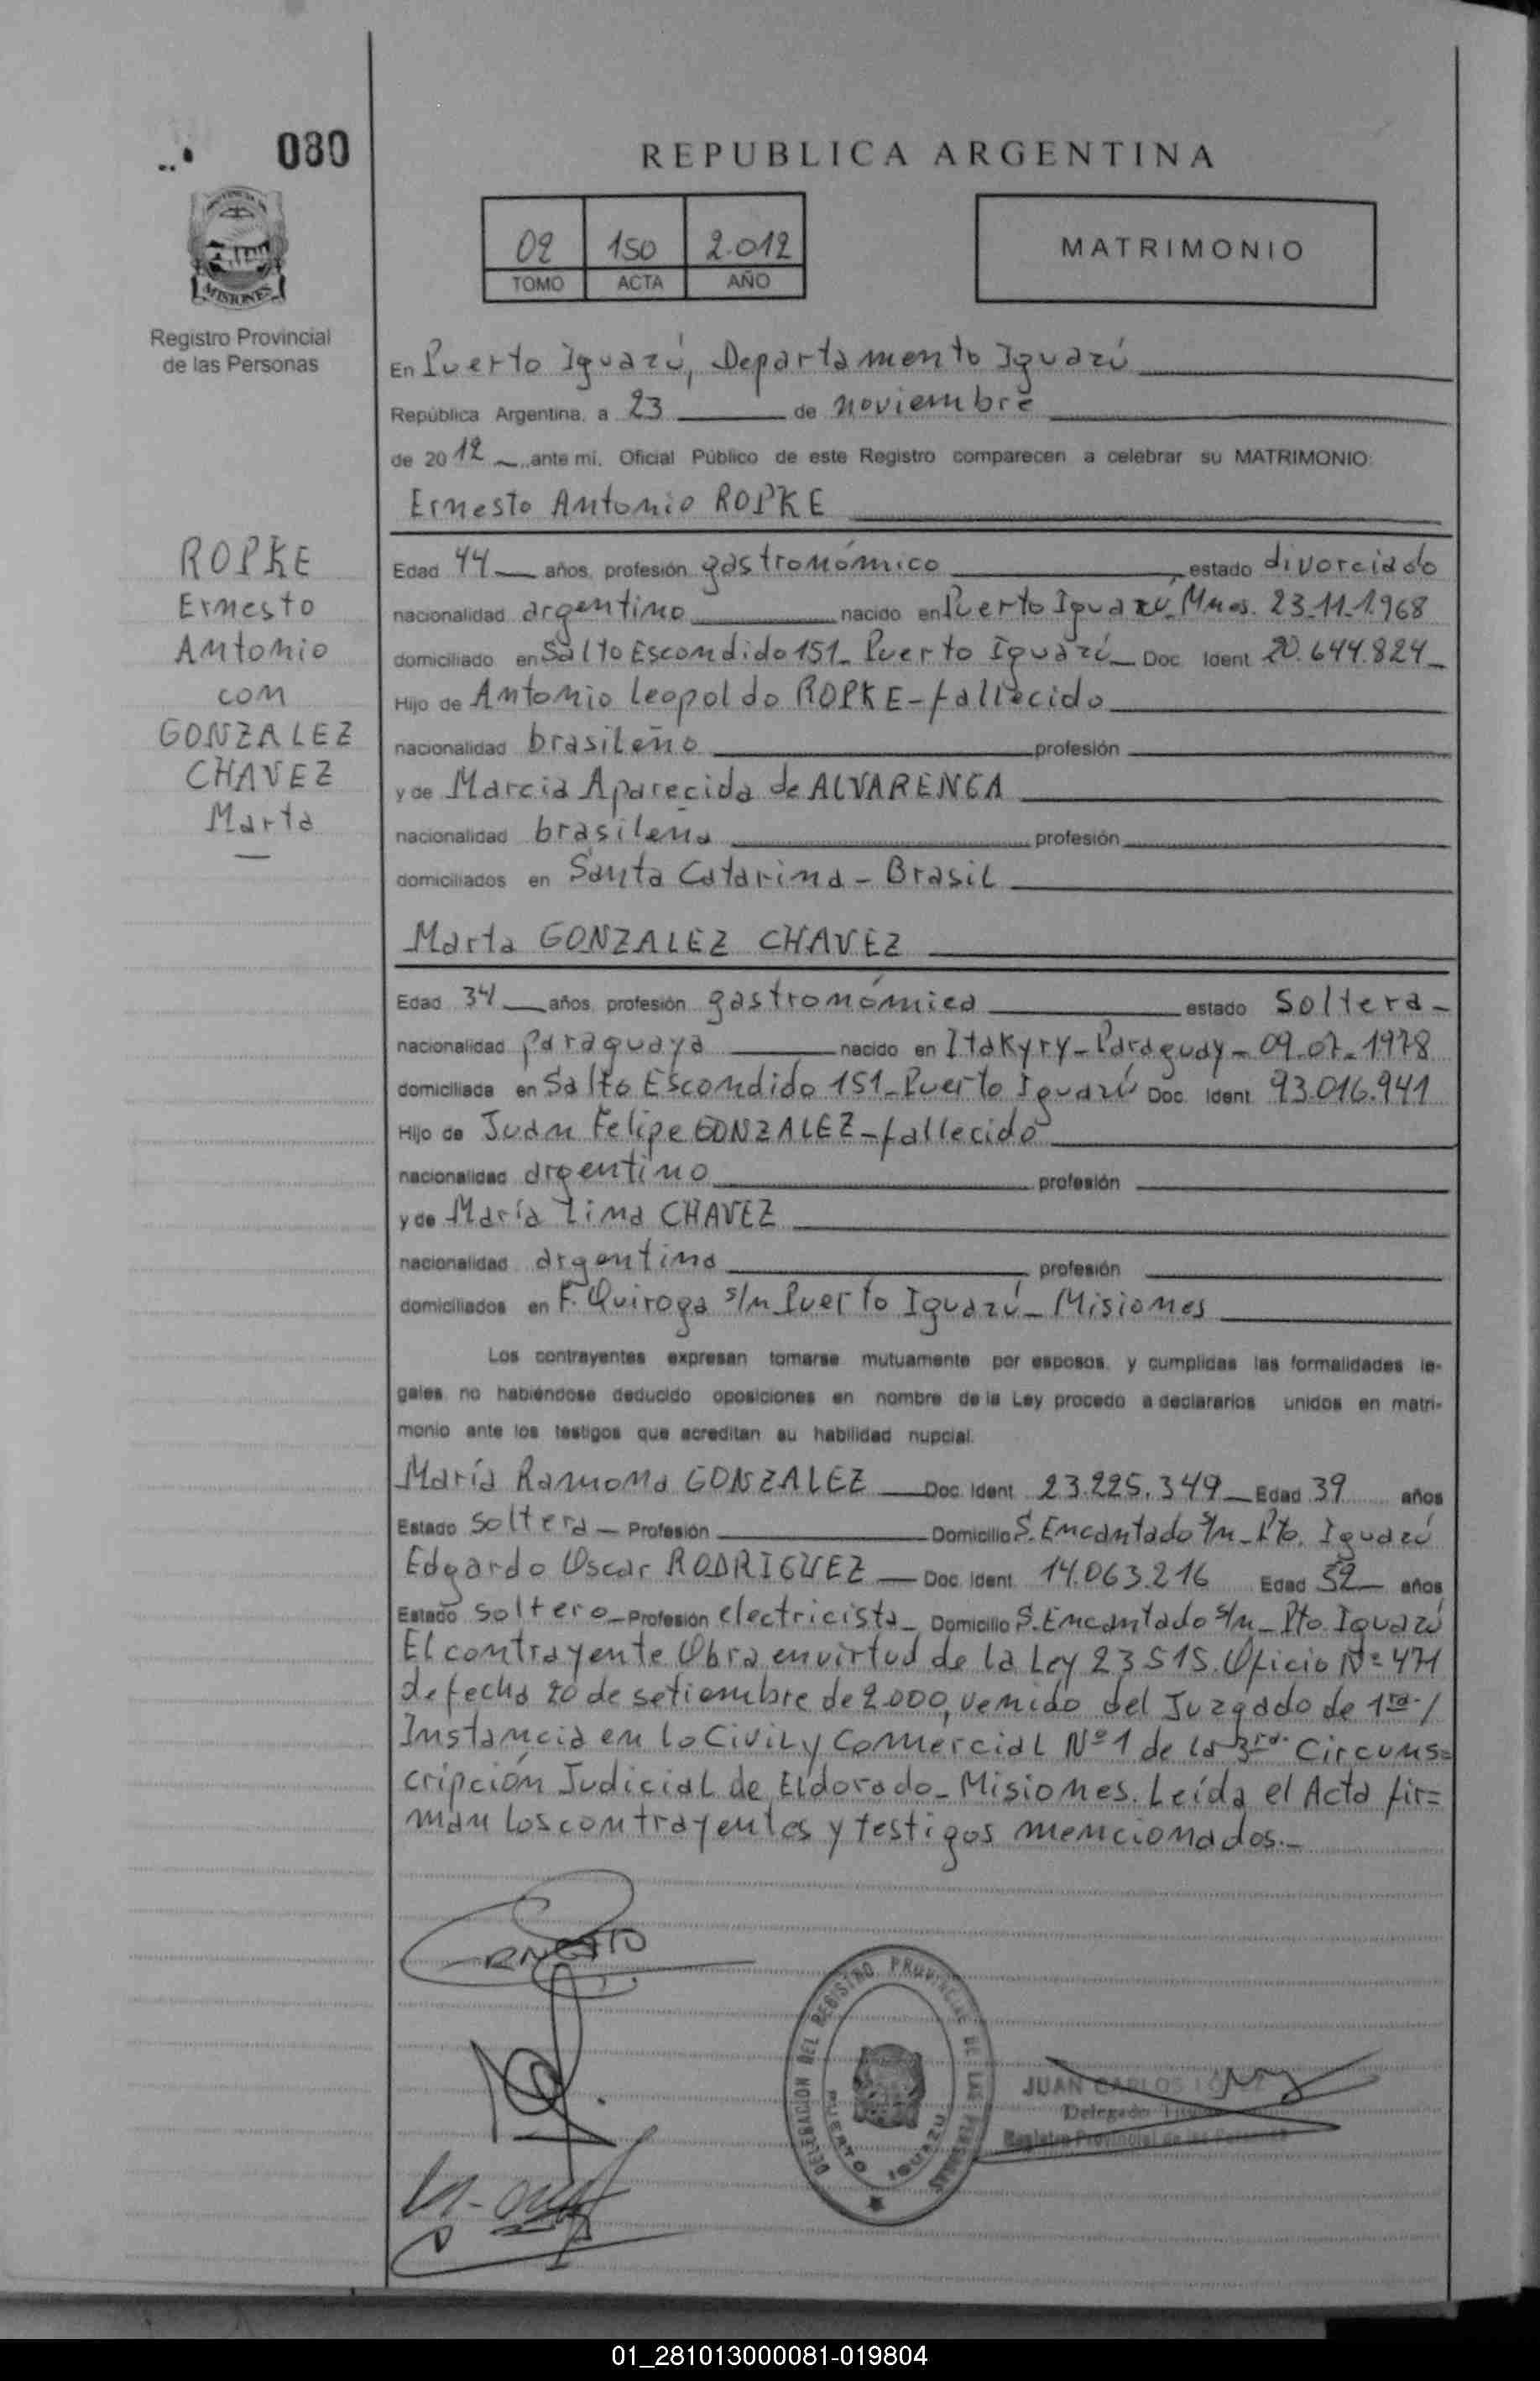 080
REPUBLICA ARGENTINA
02 150 2.012
TOMO ACTA AÑO
MATRIMONIO
MISIONES
Registro Provincial
de las Personas
En Puerto Iguazú, Departamento Iguazú
República Argentina, a 23 de noviembre
de 2012 ante mi, Oficial Público de este Registro comparecen a celebrar su MATRIMONIO:
Ernesto Antonio ROPKE
ROPKE
Ernesto
Antonio
con
GONZALEZ
CHAVEZ
Marta
Edad 44 años, profesión gastronómico estado divorciado
nacionalidad argentino nacido en Puerto Iguazú, Mnes. 23.11.1968
domiciliado en Salto Escondido 151_ Puerto Iguazú_ Doc. Ident. 20.644.824_
Hijo de Antonio Leopoldo ROPKE-fallecido
nacionalidad brasileño profesión
y de Marcia Aparecida de ALVARENGA
nacionalidad brasileña profesión
domiciliados en Santa Catarina - Brasil
Marta GONZALEZ CHAVEZ
Edad 34 años, profesión gastronómica estado soltera-
nacionalidad paraguaya nacido en Itakyry-Paraguay-09.07.1978
domiciliada en Salto Escondido 151_Puerto Iguazú Doc. Ident. 93.016.941
Hijo de Juan Felipe GONZALEZ-fallecido
nacionalidad argentino profesión
y de María Lina CHAVEZ
nacionalidad argentina profesión
domiciliados en F. Quiroga s/n Puerto Iguazú_ Misiones
Los contrayentes expresan tomarse mutuamente por esposos, y cumplidas las formalidades le-
gales, no habiéndose deducido oposiciones en nombre de la Ley procedo a declararlos unidos en matri-
monio ante los testigos que acreditan su habilidad nupcial.
María Ramona GONZALEZ Doc. Ident. 23.225.349 Edad 39 años
Estado soltera - Profesión Domicilio S. Encantado s/n_ Pto. Iguazú
Edgardo Oscar RODRIGUEZ Doc. Ident. 14.063.216 Edad 52 años
Estado soltero - Profesión electricista_ Domicilio S. Encantado s/n_ Pto. Iguazú
El contrayente Obra en virtud de la Ley 23515. Oficio Nº 471
de fecha 20 de setiembre de 2.000, venido del Juzgado de 1ra. /
Instancia en lo Civil y Comercial Nº 1 de la 3ra. Circuns=
cripción Judicial de Eldorado_ Misiones. Leída el Acta fir=
man los contrayentes y testigos mencionados._
ERNESTO
DELEGACION DEL REGISTRO PROVINCIAL DE LAS PERSONAS
PUERTO IGUAZU
JUAN CARLOS
Delegado
Registro Provincial de las Personas
01_281013000081-019804